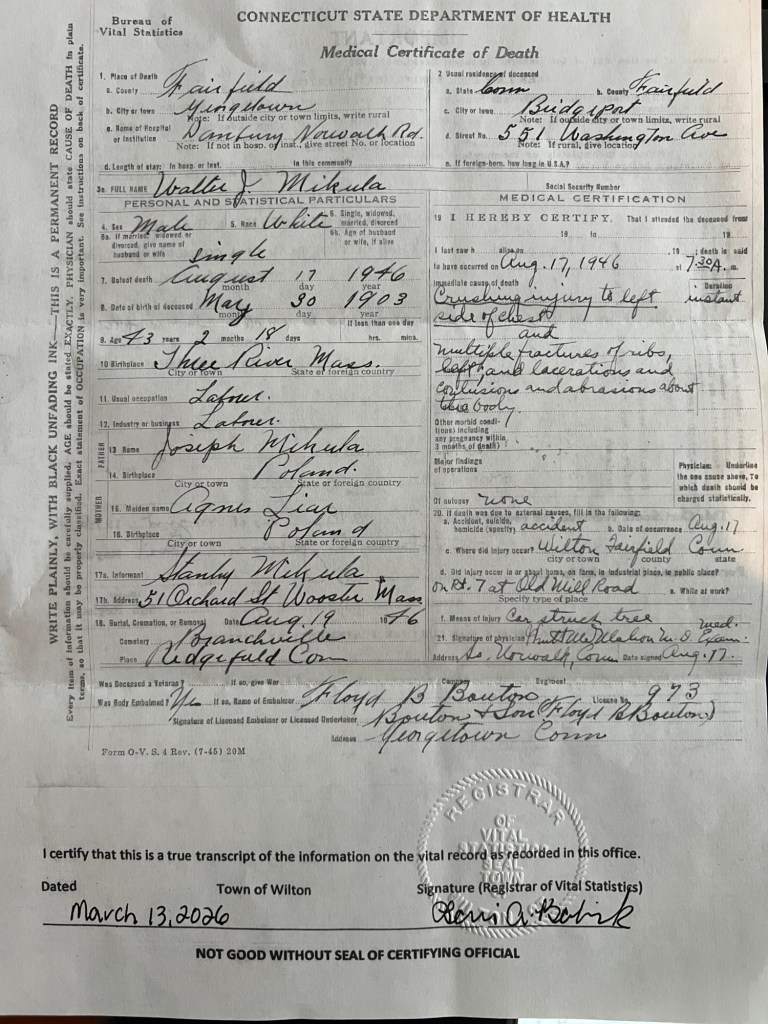 CONNECTICUT STATE DEPARTMENT OF HEALTH
Bureau of
Vital Statistics
Medical Certificate of Death
WRITE PLAINLY, WITH BLACK UNFADING INK—THIS IS A PERMANENT RECORD
Every item of information should be carefully supplied. AGE should be stated EXACTLY. PHYSICIAN should state CAUSE OF DEATH in plain
terms, so that it may be properly classified. Exact statement of OCCUPATION is very important. See instructions on back of certificate.
1. Place of Death
a. County Fairfield
b. City or town
Note: If outside city or town limits, write rural
c. Name of Hospital
or Institution Danbury Norwalk Rd.
Note: If not in hosp. or inst., give street No. or location
d. Length of stay: In hosp. or inst. In this community
2 Usual residence of deceased
a. State Conn b. County Fairfield
c. City or town Bridgeport
Note: If outside city or town limits, write rural
d. Street No. 551 Washington Ave
Note: If rural, give location
e. If foreign-born, how long in U.S.A.?
3a. FULL NAME Walter J. Mikula
Social Security Number
PERSONAL AND STATISTICAL PARTICULARS
4. Sex Male 5. Race White 6. Single, widowed,
married, divorced
6a. If married, widowed or
divorced, give name of
husband or wife single
6b. Age of husband
or wife, if alive
7. Date of death August 17 1946
month day year
8. Date of birth of deceased May 30 1903
month day year
9. Age 43 years 2 months 18 days If less than one day
hrs. mins.
10 Birthplace Three River Mass.
City or town State or foreign country
11. Usual occupation Laborer.
12. Industry or business Laborer.
FATHER
13 Name Joseph Mikula
14. Birthplace Poland.
City or town State or foreign country
MOTHER
15. Maiden name Agnes Liar
16. Birthplace Poland
City or town State or foreign country
17a. Informant Stanley Mikula
17b. Address 51 Orchard St Wooster Mass
18. Burial, Cremation, or Removal Date Aug. 19 1946
Cemetery Branchville
Place Ridgefield Conn
MEDICAL CERTIFICATION
19 I HEREBY CERTIFY, That I attended the deceased from
19 to 19
I last saw h alive on , 19 ; death is said
to have occurred on Aug. 17, 1946 at 7:30 A. m.
Immediate cause of death Duration
Crushing injury to left instant
side of chest
and
multiple fractures of ribs,
left, and lacerations and
contusions and abrasions about
the body.
Other morbid condi-
tions) including
any pregnancy within
3 months of death)
Major findings
of operations
Physician: Underline
the one cause above, to
which death should be
charged statistically.
Of autopsy none
20. If death was due to external causes, fill in the following:
a. Accident, suicide,
homicide (specify) accident b. Date of occurrence Aug. 17
c. Where did injury occur? Wilton Fairfield Conn
city or town county state
d. Did injury occur in or about home, on farm, in industrial place, in public place?
on Rt. 7 at Old Mill Road e. While at work?
Specify type of place
f. Means of injury Car struck tree
21. Signature of physician M.D. med. Exam.
Address So. Norwalk, Conn Date signed Aug. 17.
Was Deceased a Veteran? If so, give War Company Regiment
Was Body Embalmed? Yes If so, Name of Embalmer Floyd B Bouton License No. 973
Signature of Licensed Embalmer or Licensed Undertaker Bouton & Son (Floyd B Bouton)
Address Georgetown Conn
Form O-V. S. 4 Rev. (7-45) 20M
REGISTRAR
OF
VITAL
STATISTICS
SEAL
TOWN
I certify that this is a true transcript of the information on the vital record as recorded in this office.
Dated Town of Wilton Signature (Registrar of Vital Statistics)
March 13, 2026
NOT GOOD WITHOUT SEAL OF CERTIFYING OFFICIAL